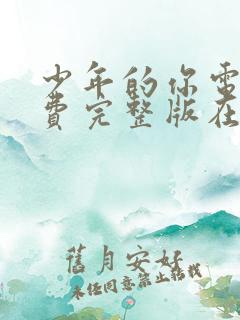 少年的你电
费完整版在
舊月安好
未经同意禁止转载